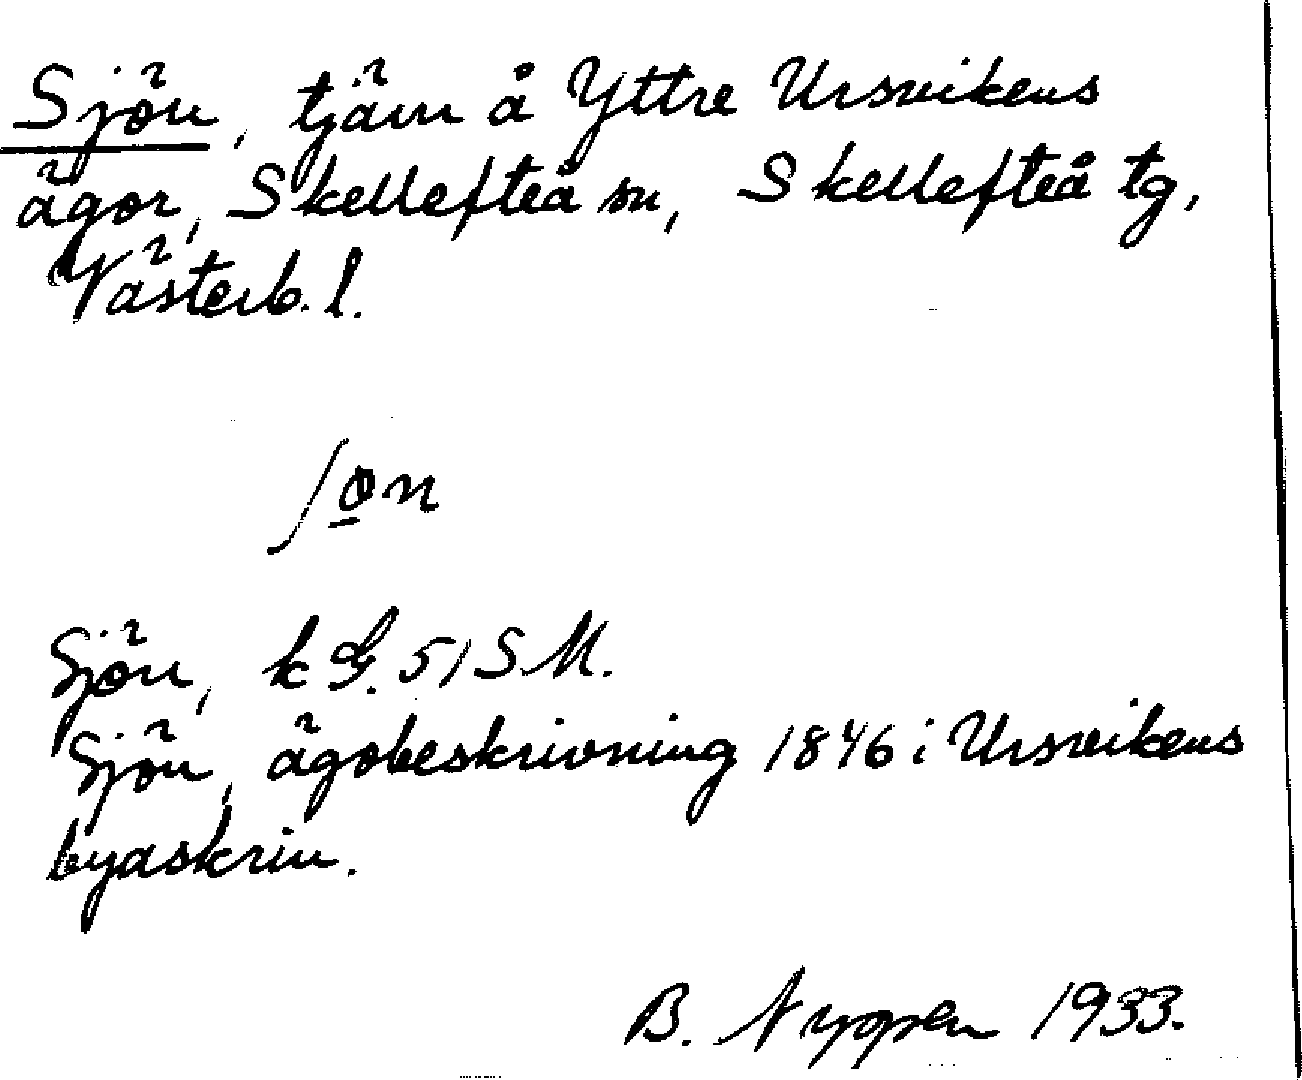 Sjön, tjärn å Yttre Ursvikens
ägor, Skellefteå sn, Skellefteå tg,
Västerb. l.
ʃøn
Sjön, k G. 51 S M.
Sjön, ägobeskrivning 1846 i Ursvikens
byaskrin.
B. 1933.